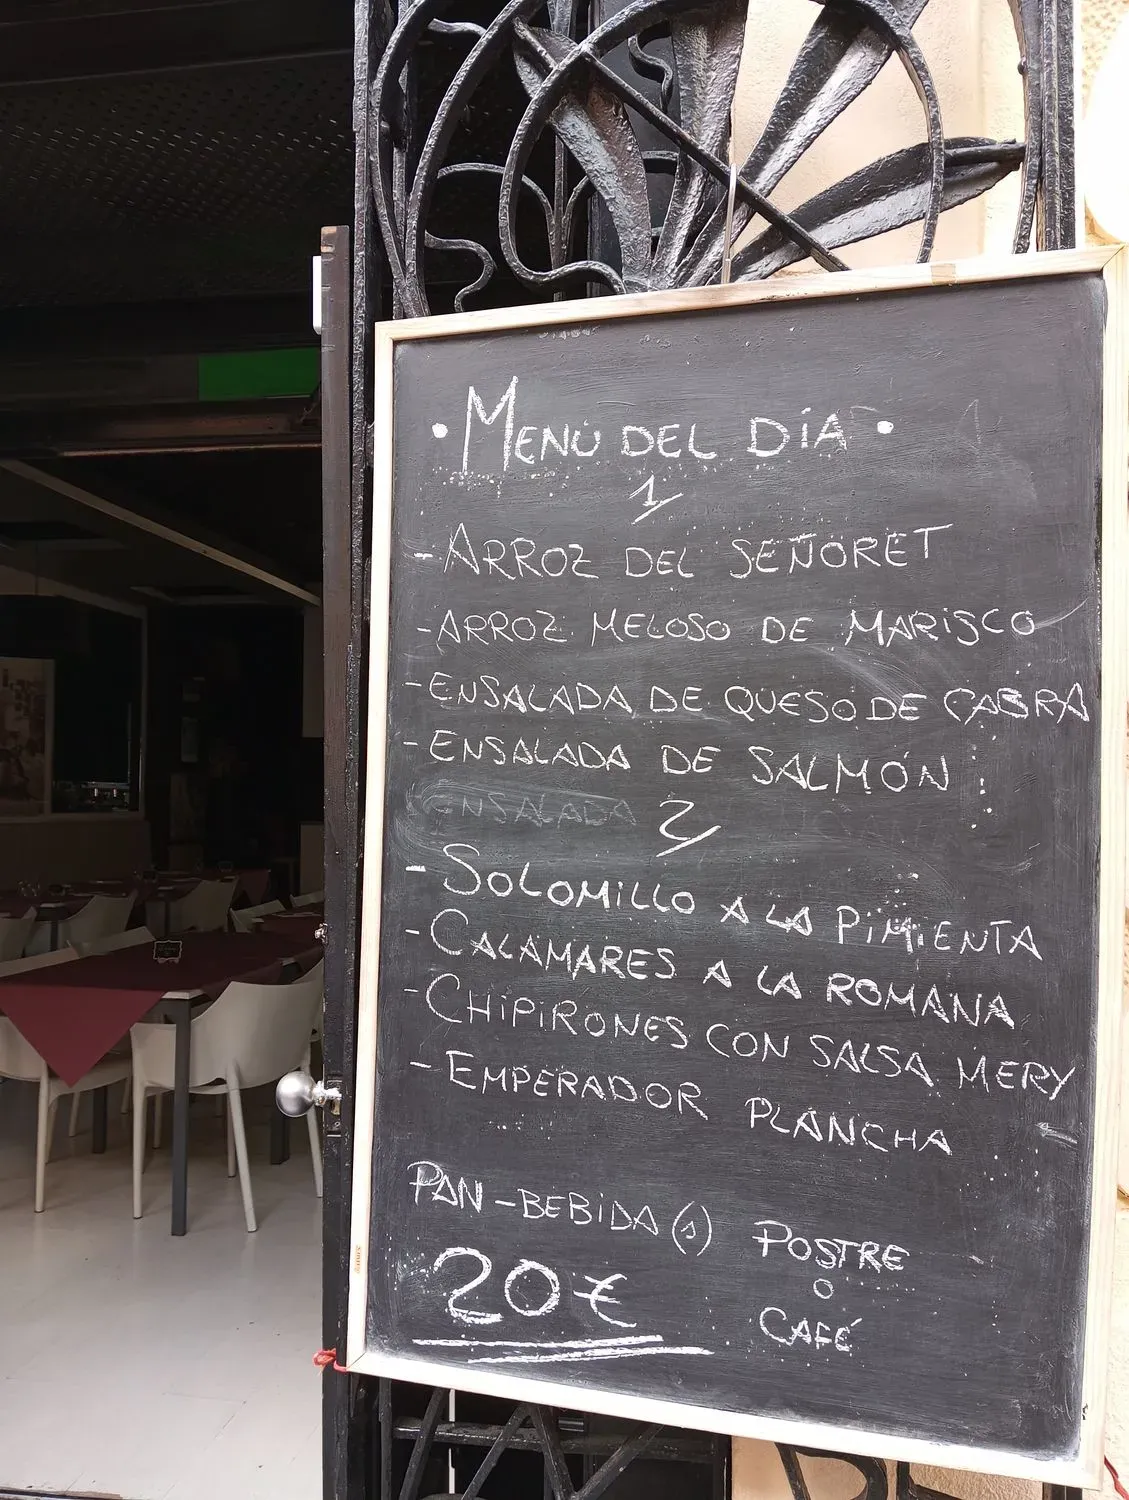 • MENÚ DEL DÍA •
1
- ARROZ DEL SEÑORET
- ARROZ MELOSO DE MARISCO
- ENSALADA DE QUESO DE CABRA
- ENSALADA DE SALMÓN
ENSALADA
2
- SOLOMILLO A LA PIMIENTA
- CALAMARES A LA ROMANA
- CHIPIRONES CON SALSA MERY
- EMPERADOR PLANCHA
PAN - BEBIDA (1)
POSTRE
O
CAFÉ
20€